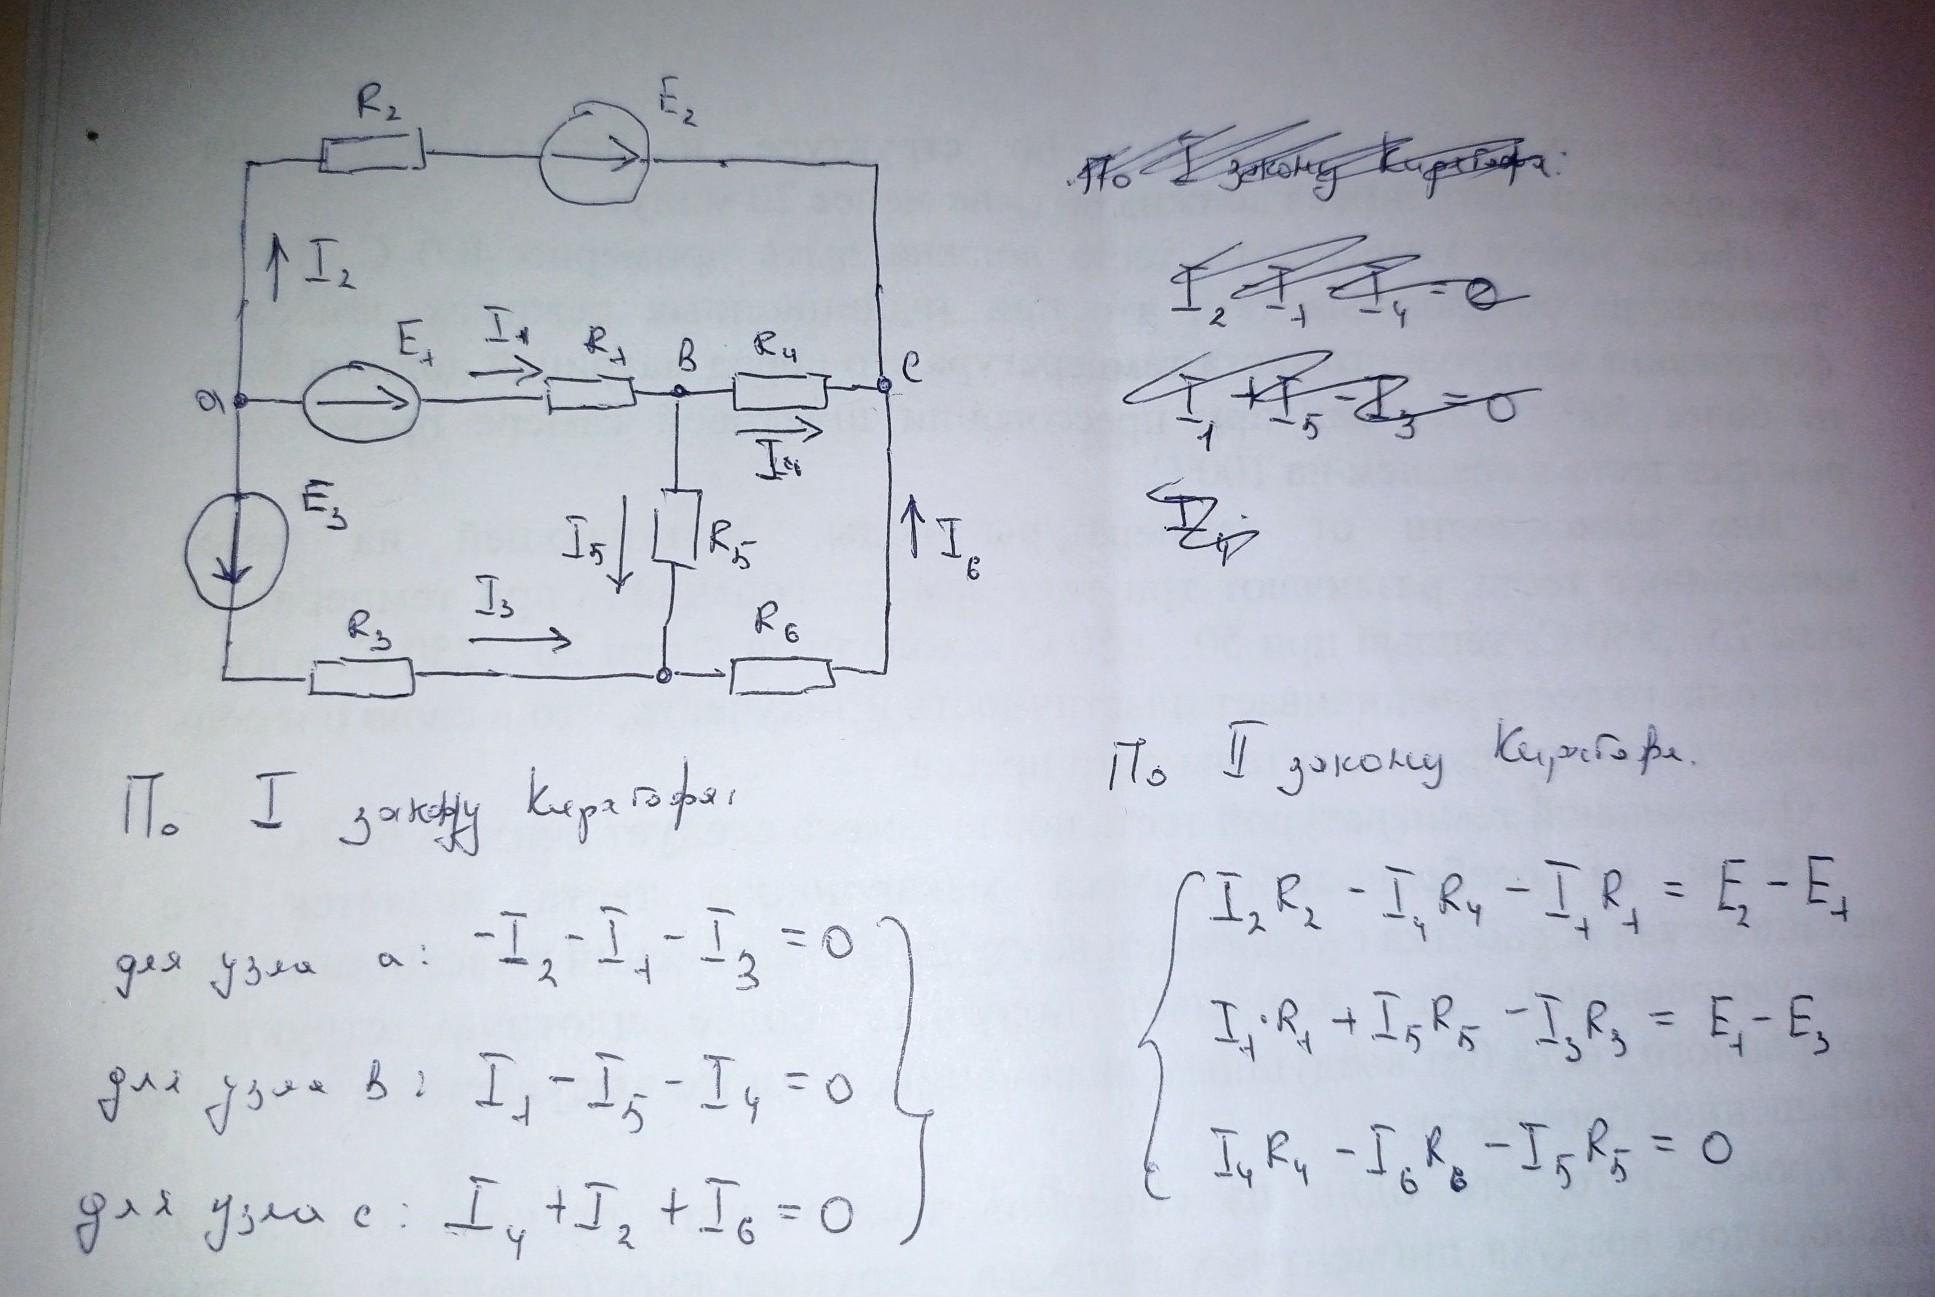 R₂
E₂
I₂
E₁
I₁
R₁
B
R₄
C
a
I₄
E₃
I₅
R₅
I₆
I₃
R₃
R₆
По I закону Кирхгофа:
I₂ - I₁ - I₄ = 0
I₁ + I₅ - I₃ = 0
I₄
По I закону Кирхгофа:
для узла a: -I₂ - I₁ - I₃ = 0
для узла B: I₁ - I₅ - I₄ = 0
для узла c: I₄ + I₂ + I₆ = 0
По II закону Кирхгофа.
I₂R₂ - I₄R₄ - I₁R₁ = E₂ - E₁
I₁·R₁ + I₅R₅ - I₃R₃ = E₁ - E₃
I₄R₄ - I₆R₆ - I₅R₅ = 0